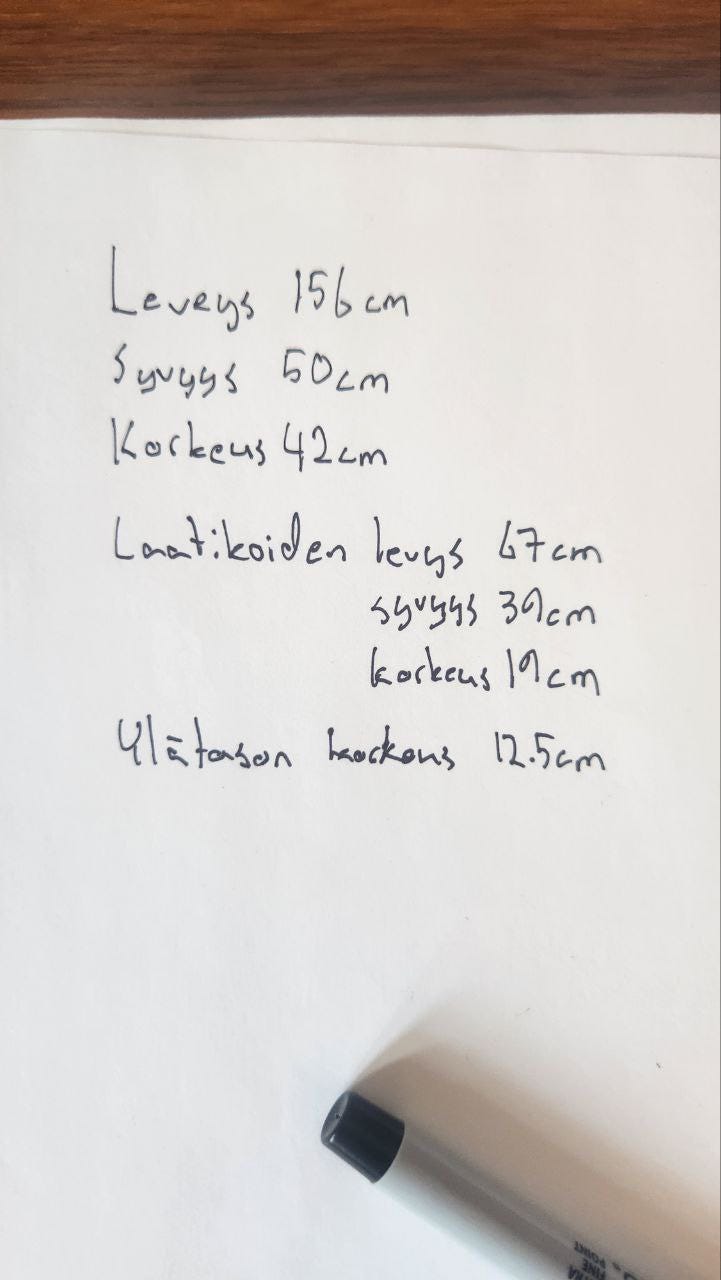 Leveys 156cm
Syvyys 50cm
Korkeus 42cm
Laatikoiden levys 67cm
syvyys 39cm
korkeus 19cm
Ylätason korkeus 12.5cm
FINE
POINT